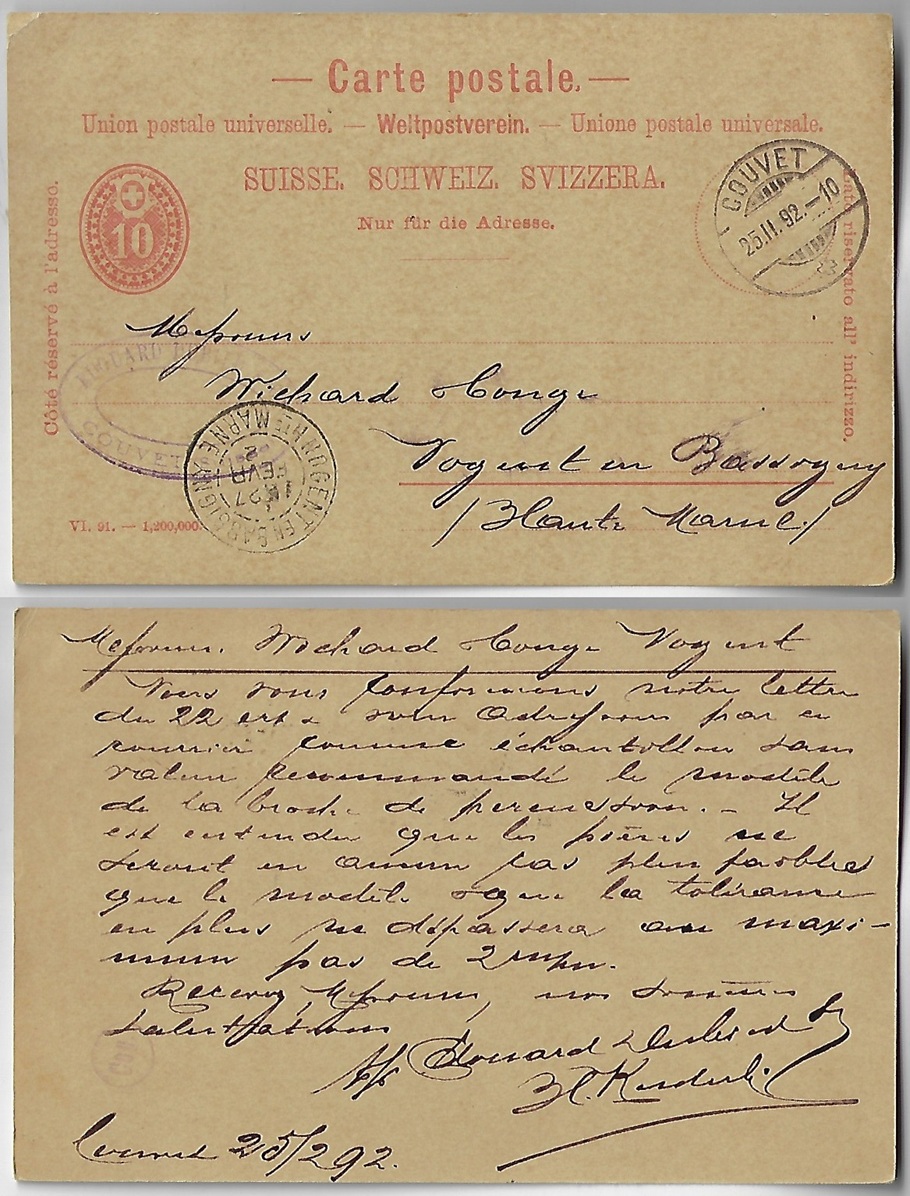 — Carte postale. —
Union postale universelle. — Weltpostverein. — Unione postale universale.
SUISSE. SCHWEIZ. SVIZZERA.
Nur für die Adresse.
10
Côté réservé à l'adresse.
Lato riservato all' indirizzo.
COUVET
25.II.92.–10
Messieurs
Wichard
Nogent en Bassigny
/Haute Marne/
EDOUARD
COUVET
NOGENT EN BASSIGNY
Hte MARNE
27
FEVR
VI. 91. — 1,200,000.
Messieurs. Wichard Nogent
Nous vous confirmons notre lettre
du 22 et & vous adressons par ce
courrier comme échantillon sans
valeur recommandé le modèle
de la broche de percussion. — Il
est entendu que les pièces ne
seront en aucun cas plus faibles
que le modèle & que la tolérance
en plus ne dépassera au maxi-
mum pas de
Recevez, Messieurs, nos sincères
salutations
Edouard Dubied
Couvet 25/2 92.